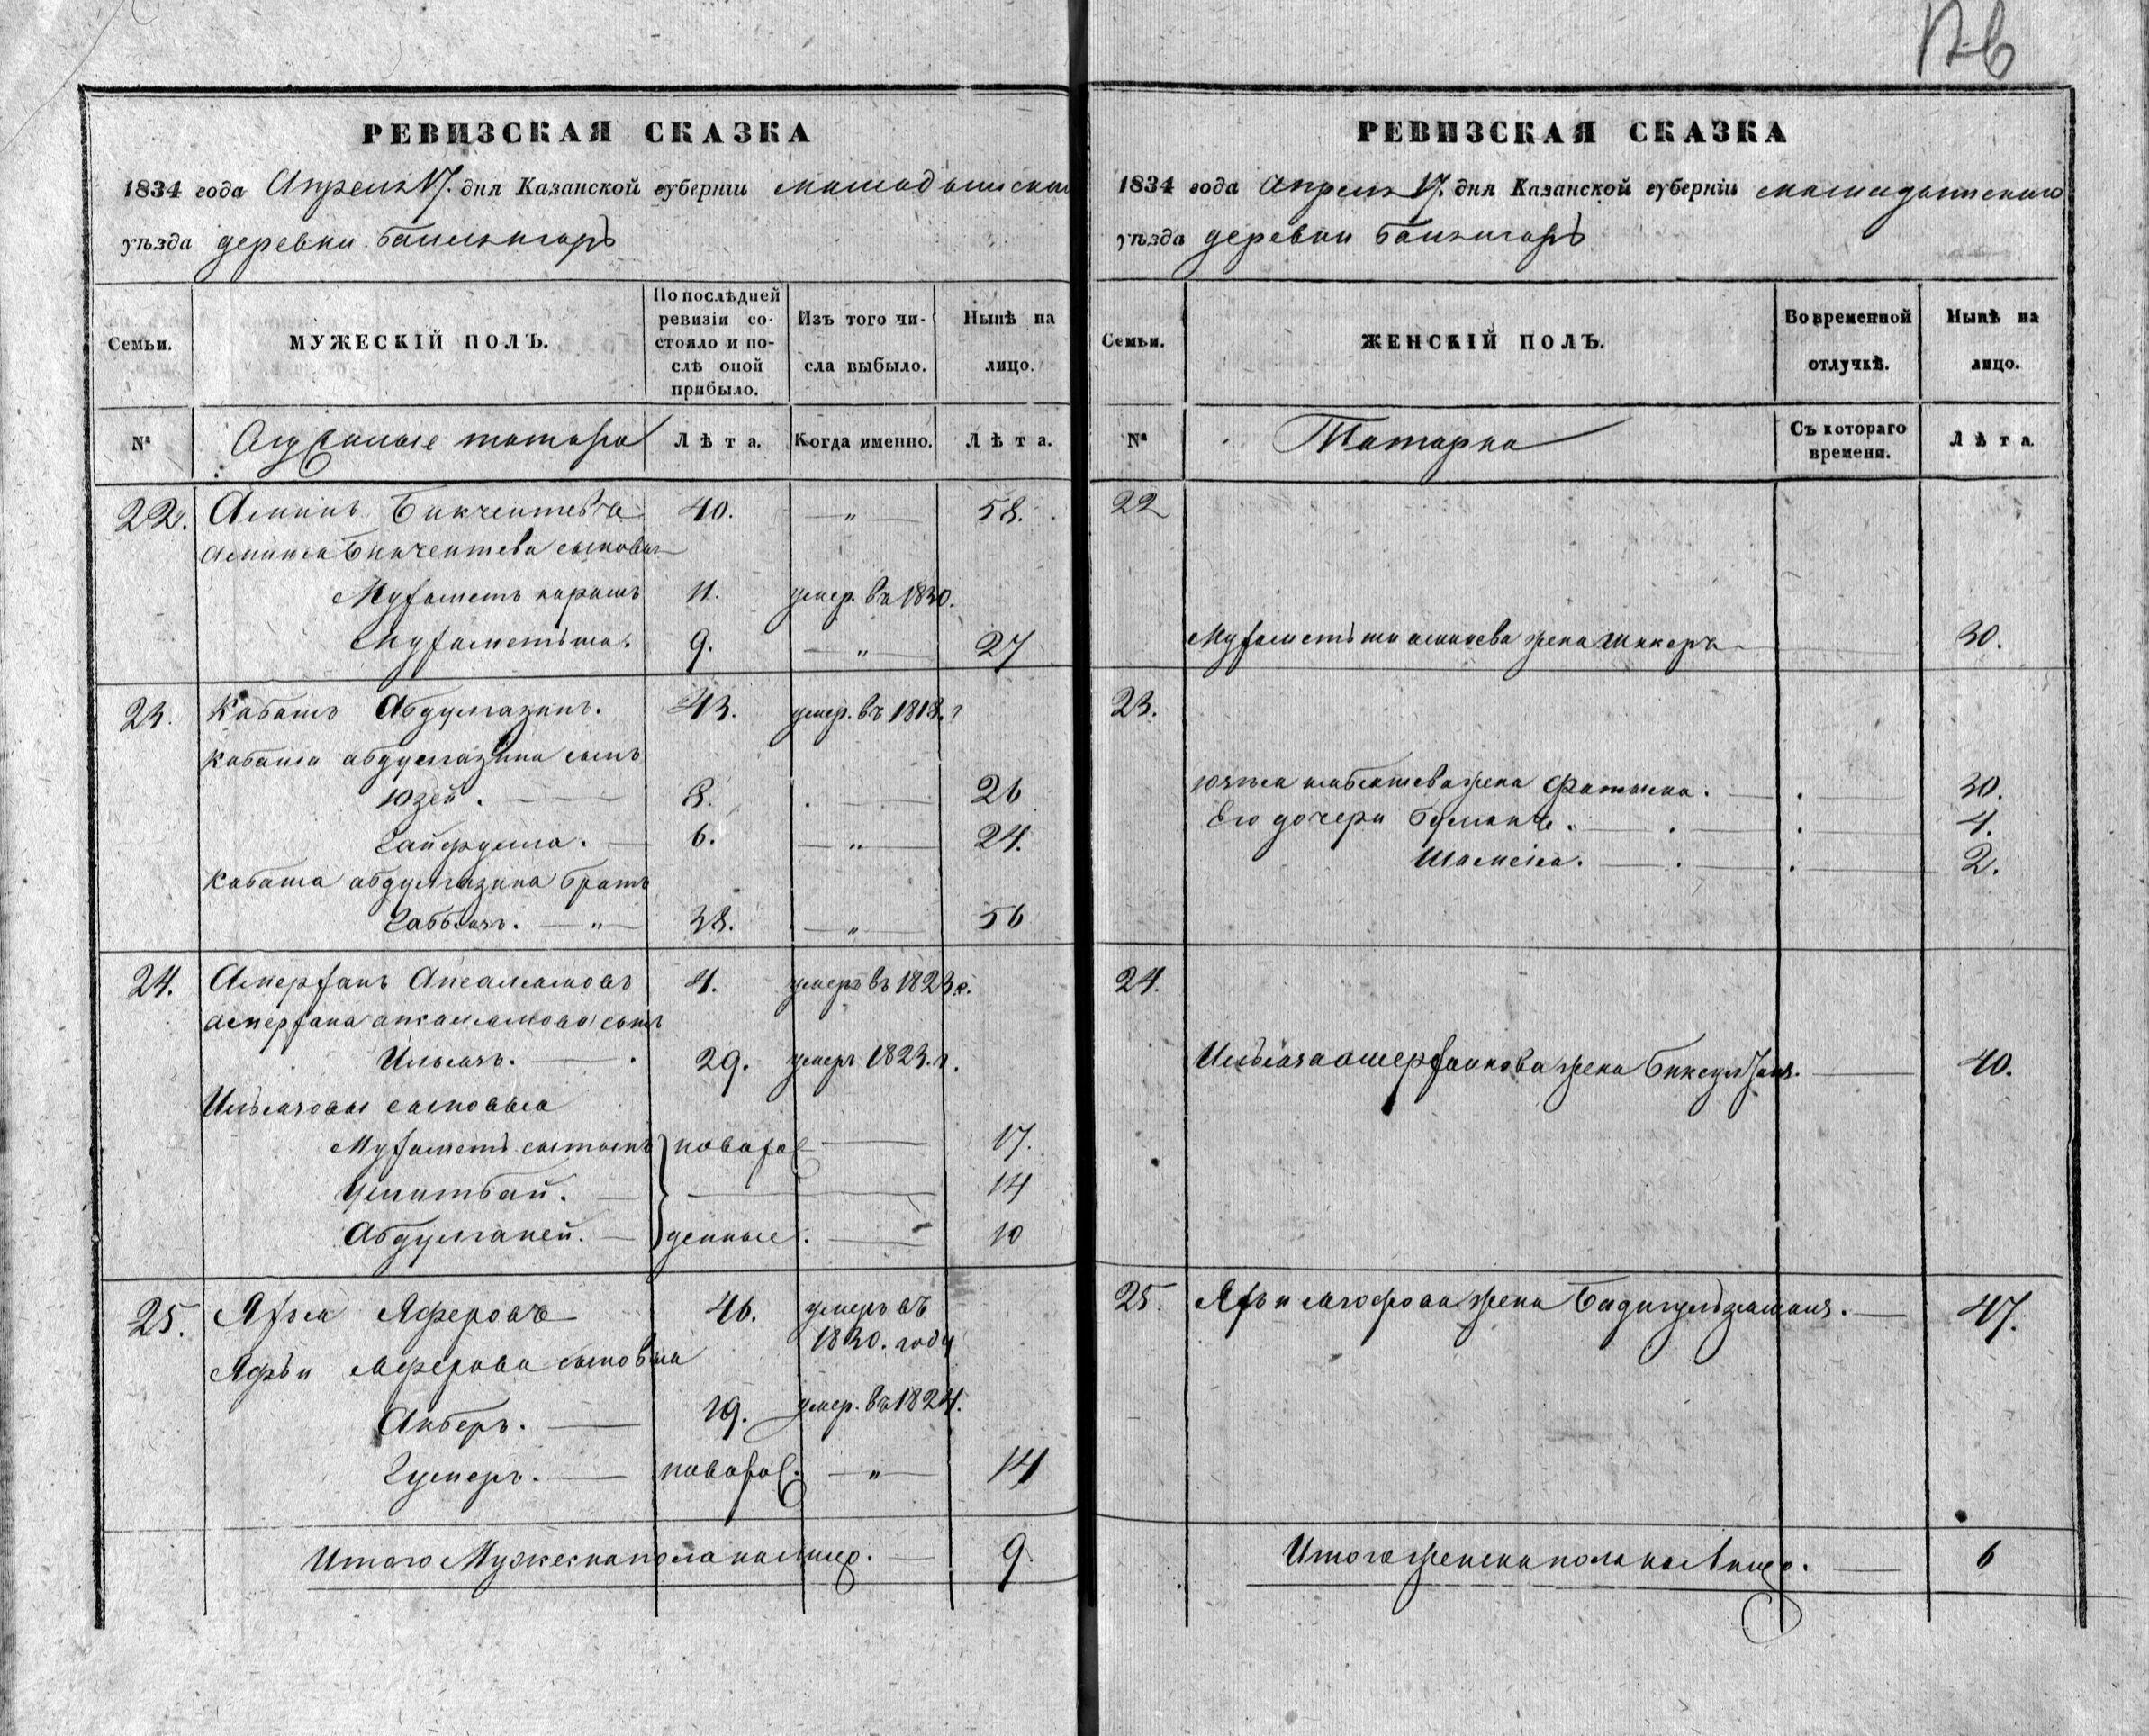 РЕВИЗСКАЯ СКАЗКА
1834 года Апреля 17. дня Казанской губерніи мамадышскаго
уѣзда деревни
Семьи.
МУЖЕСКІЙ ПОЛЪ.
По послѣдней ревизіи состояло и послѣ оной прибыло.
Изъ того числа выбыло.
Нынѣ на лицо.
№
татара
Лѣта.
Когда именно.
Лѣта.
22. Аминъ Бикчентевъ 40. — " — 58.
Амина Бикчентева сыновья
Мухаметъ каримъ 11. умер. въ 1830.
Мухаметьша. 9. — " — 27
23. Кабашъ Абдулгазинъ. 43. умер. въ 1818. г
Кабаша абдулгазина сынъ
Юзей. — 8. . — 26
Сайфулла. — 6. — " — 24.
Кабаша абдулгазина братъ
38. — " — 56
24. 4. умеръ въ 1823 г.
сынъ
Ильясъ. — 29. умеръ 1823. г.
Ильясовы сыновья
Мухаметъ новорож — 17.
Умитбай. — — 14
Абдулганей. — денные. — 10
25. Яхья Яферовъ 46. умеръ въ
1830. году
Яхьи Яферова сыновья
Акберъ. — 19. умер. въ 1824.
Гумеръ. — новорож. — " — 14
Итого Мужеска пола на лицо. — 9.
РЕВИЗСКАЯ СКАЗКА
1834 года Апреля 17. дня Казанской губерніи мамадышскаго
уѣзда деревни
Семьи.
ЖЕНСКІЙ ПОЛЪ.
Во временной отлучкѣ.
Нынѣ на лицо.
№
Татарка
Съ котораго времени.
Лѣта.
22
Мухаметьши аминева жена — 30.
23.
жена Фатыма. — . — 30.
Его дочери — . — . — 4.
— . — . — 2.
24.
Ильяса жена — 40.
25. Яхьи жена Бадигульзамал. — 47.
Итого женска пола на лицо. — 6